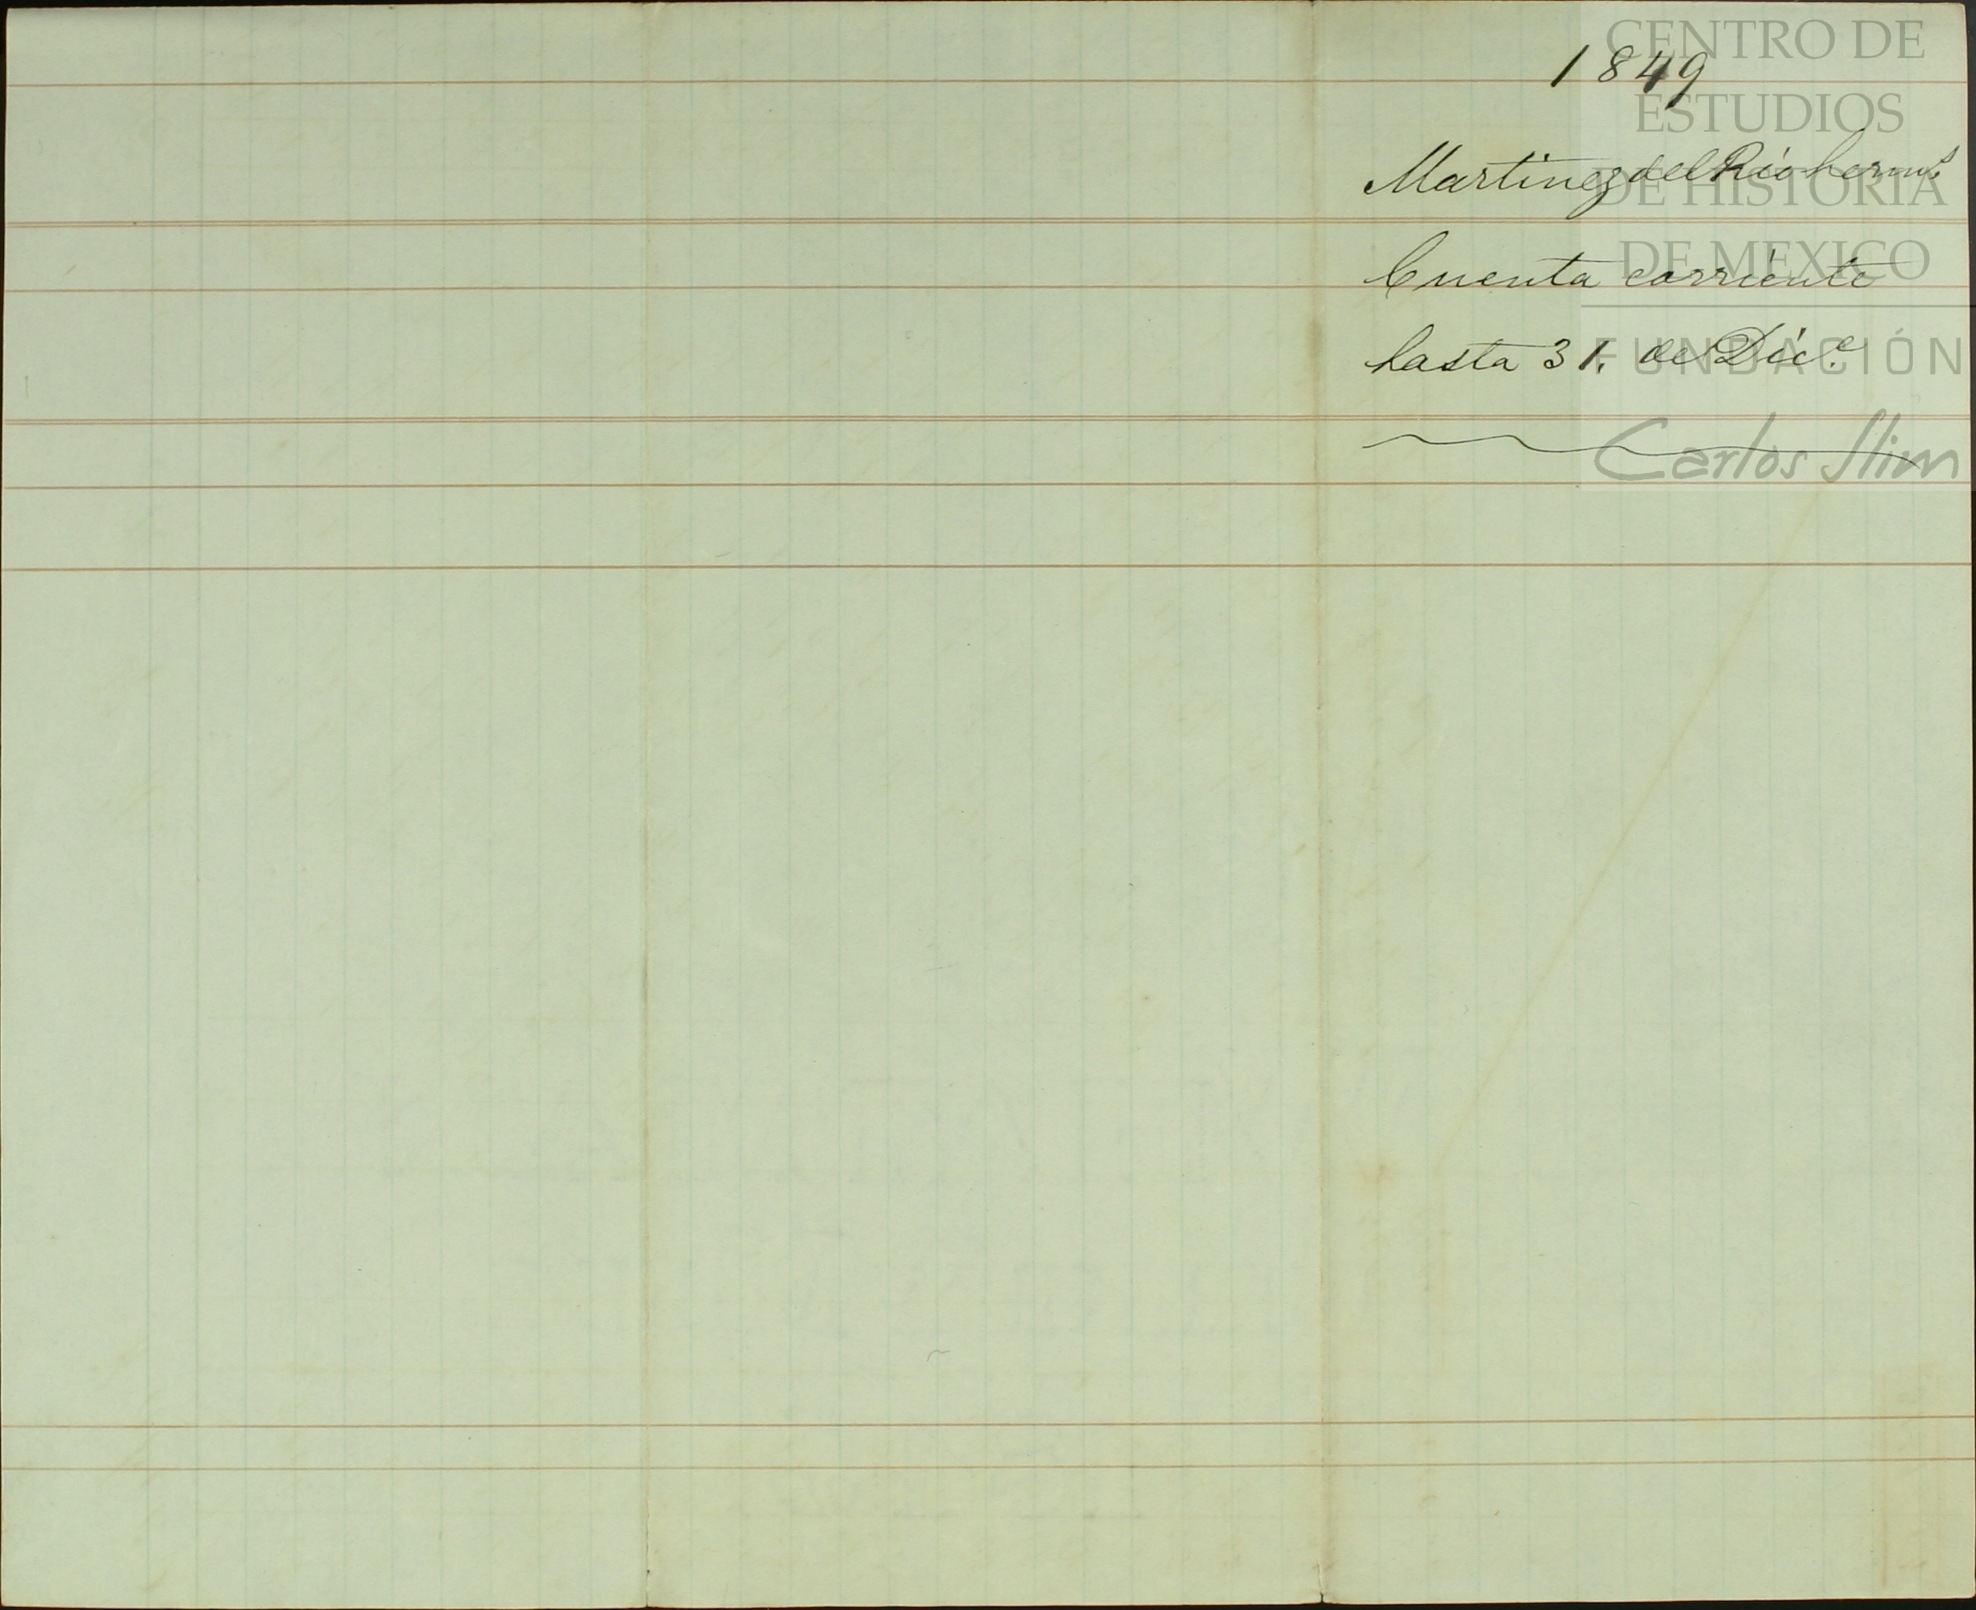 1849
Martinez del Rio herm.s
Cuenta corriente
hasta 31. de Dic.e
CENTRO DE
ESTUDIOS
DE HISTORIA
DE MEXICO
FUNDACIÓN
Carlos Slim